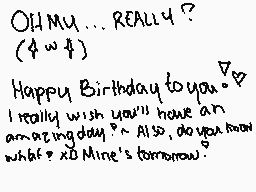 OH MY... REALLY?
(¢ w ¢)
Happy Birthday to you!♡♡
I really wish you'll have an
amazing day!~ Also, do you know
what? xD Mine's tomorrow!